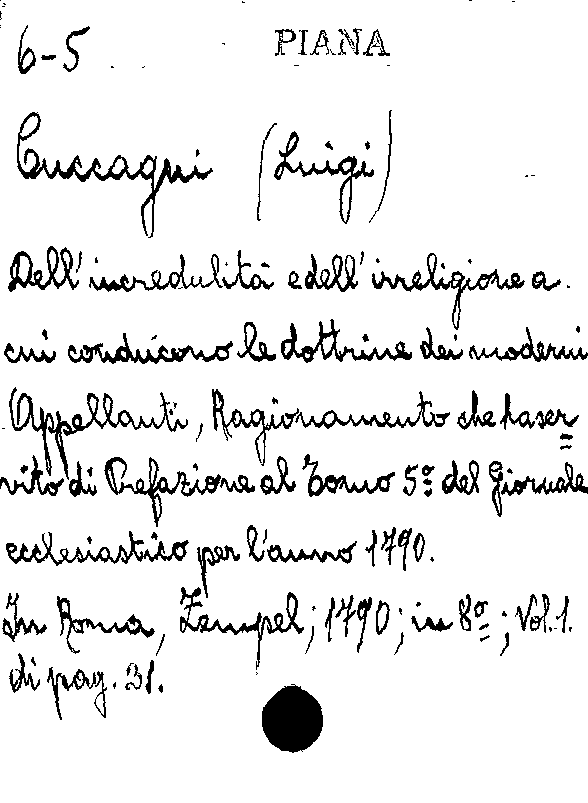 6-5 PIANA
Cuccagni (Luigi)
Dell'incredulità e dell'irreligione a
cui conducono le dottrine dei moderni
Appellanti, Ragionamento che ha ser=
vito di Prefazione al Tomo 5º del Giornale
ecclesiastico per l'anno 1790.
In Roma, Zempel; 1790; in 8º; Vol. 1.
di pag. 31.